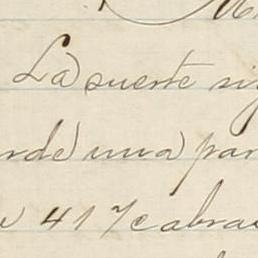 La suerte si
rde una par
417 cabras